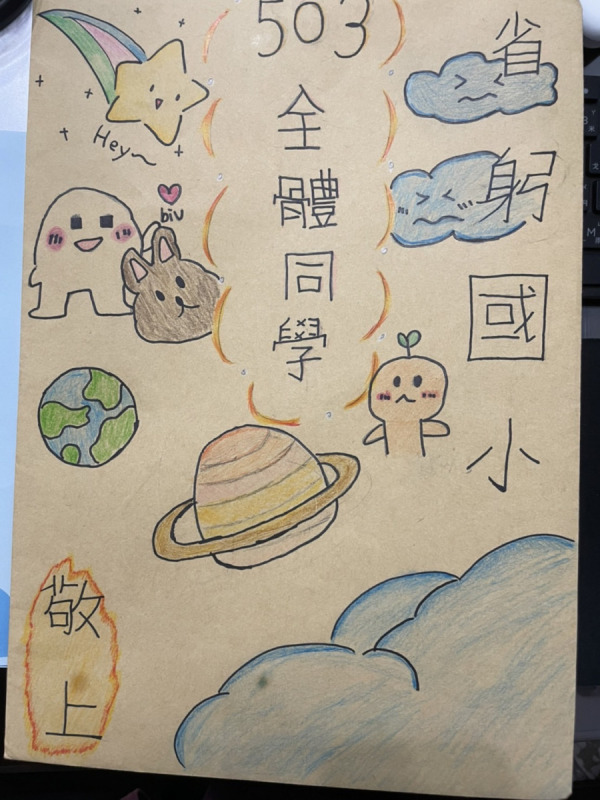 省躬國小
503
全體同學
Hey~
biu
敬上